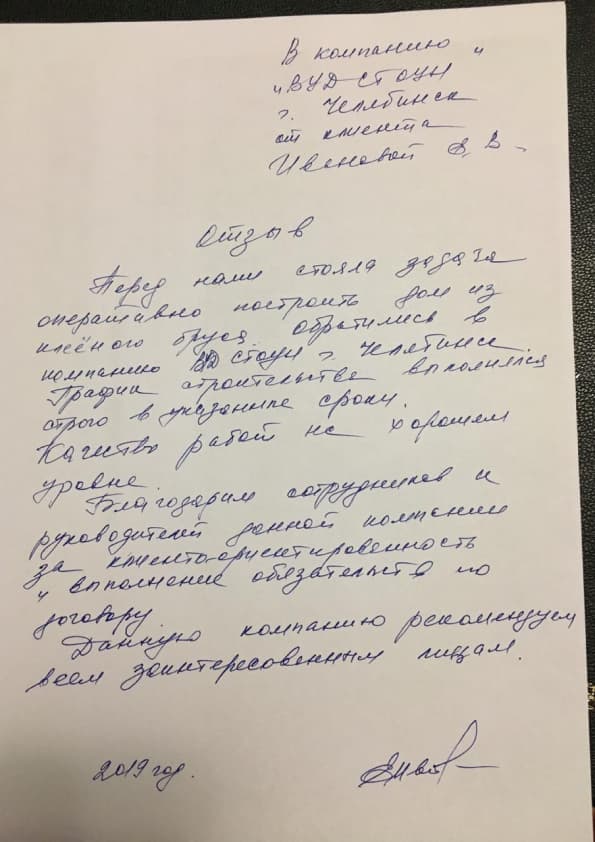 В компанию
"ВУД СТОУН"
г. Челябинск
от клиента
Ивановой Е. В.
Отзыв
Перед нами стояла задача
оперативно построить дом из
клеёного бруса. обратились в
компанию ВУД СТОУН г. Челябинск.
График строительства выполнялся
строго в указанные сроки.
Качество работ на хорошем
уровне.
Благодарим сотрудников и
руководителей данной компании
за клиенто-ориентированность
и выполнение обязательств по
договору.
Данную компанию рекомендуем
всем заинтересованным лицам.
2019 год.